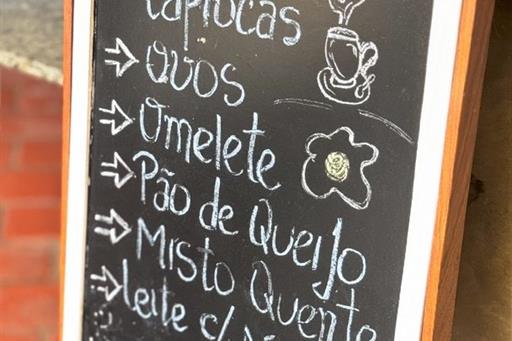 tapiocas
ovos
Omelete
Pão de Queijo
Misto Quente
leite c/